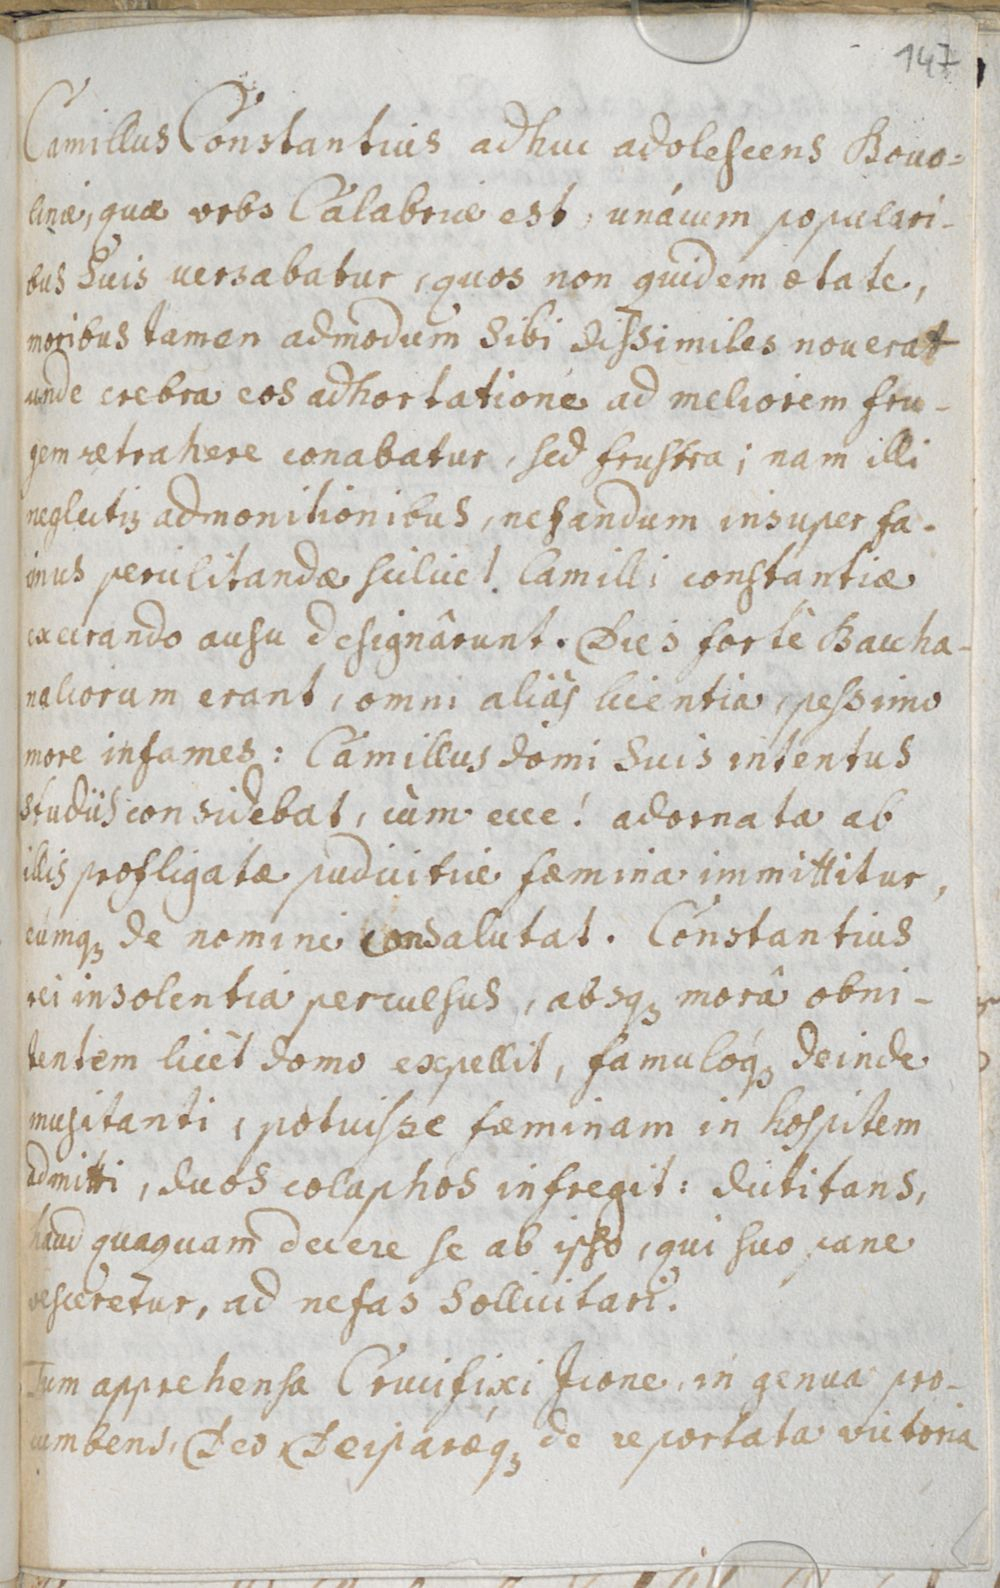 147
Camillus Constantius adhuc adolescens Bouo=
linæ, quæ vrbs Calabriæ est, unácum populari-
bus Suis uersabatur, quos non quidem ætate,
moribus tamen admodum sibi dissimiles nouerat
unde crebra eos adhortatione ad meliorem fru-
gem retrahere conabatur, sed frustra; nam illi
neglectis admonitionibus, nefandum insuper fa-
cinus periclitandæ scilicet Camilli constantiæ
execrando ausu designârunt. Dies fortè Baccha-
naliorum erant, omni aliàs licentia, pessimo
more infames: Camillus domi Suis intentus
studiis considebat, cùm ecce! adornata ab
illis profligatæ pudicitiæ fæmina immittitur,
eumq3 de nomine consalutat. Constantius
rei insolentia perculsus, absq3 morâ obni-
tentem licèt domo expellit, famulóq3 deinde
musitanti, potuisse fæminam in hospitem
admitti, duos colaphos infregit: dictitans,
haud quaquam decere se ab ipso, qui suo pane
vesceretur, ad nefas Sollicitari.
Tum apprehensa Crucifixi Icone, in genua pro-
cumbens, Deo Deiparæq3 de reportata victoria